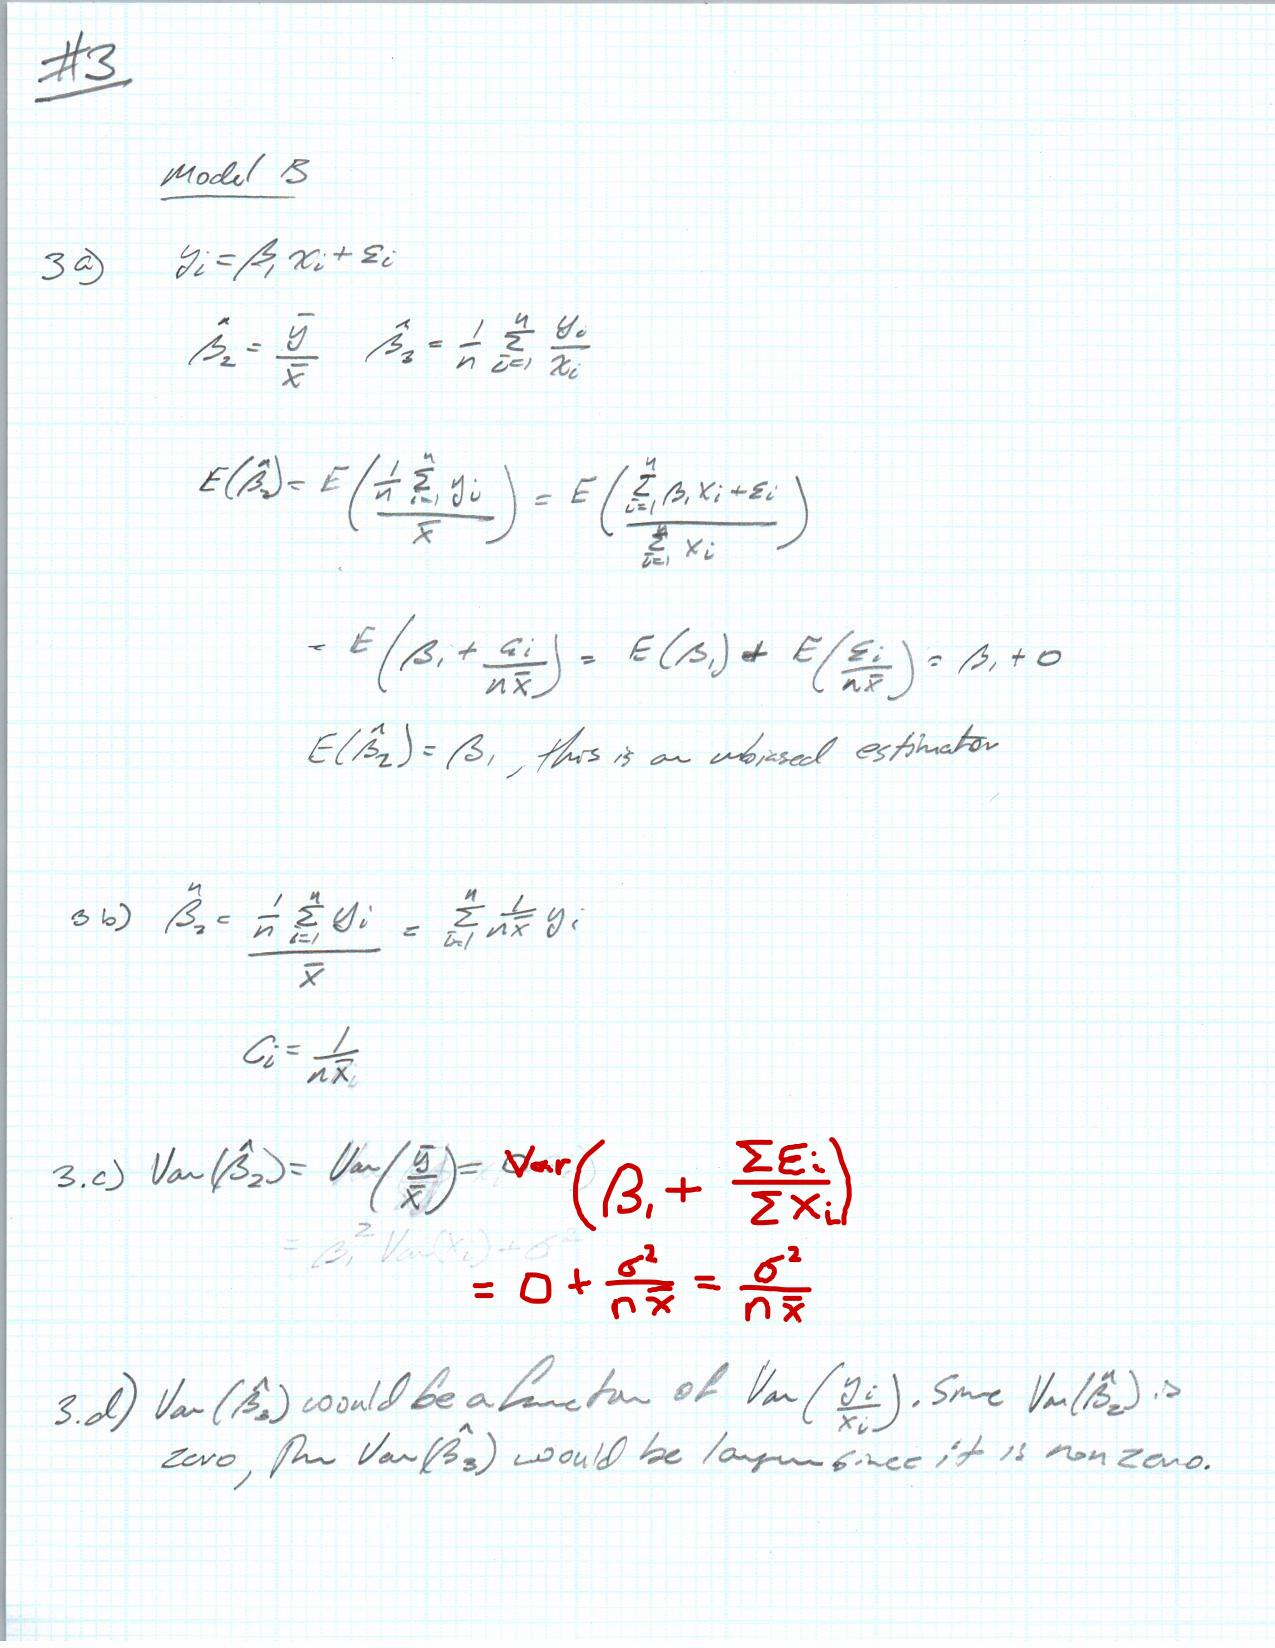 #3
Model B
3a) yᵢ = β₁ xᵢ + εᵢ
β̂₂ = ȳ / x̄   β̂₃ = 1/n Σᵢ₌₁ⁿ yᵢ / xᵢ
E(β̂₂) = E( (1/n Σᵢ₌₁ⁿ yᵢ) / x̄ ) = E( (Σᵢ₌₁ⁿ β₁xᵢ + εᵢ) / (Σᵢ₌₁ⁿ xᵢ) )
= E( β₁ + εᵢ / (n x̄) ) = E(β₁) + E( εᵢ / (n x̄) ) = β₁ + 0
E(β̂₂) = β₁, this is an unbiased estimator
3b) β̂₂ = (1/n Σᵢ₌₁ⁿ yᵢ) / x̄ = Σᵢ₌₁ⁿ 1/(n x̄) yᵢ
Cᵢ = 1/(n x̄)
3.c) Var(β̂₂) = Var( ȳ / x̄ ) = Var( β₁ + Σεᵢ / Σxᵢ )
= β₁² Var(xᵢ) + σ²
= 0 + σ² / (n x̄) = σ² / (n x̄)
3.d) Var(β̂₃) would be a function of Var( yᵢ / xᵢ ). Since Var(β̂₂) is
zero, the Var(β̂₃) would be larger since it is non zero.